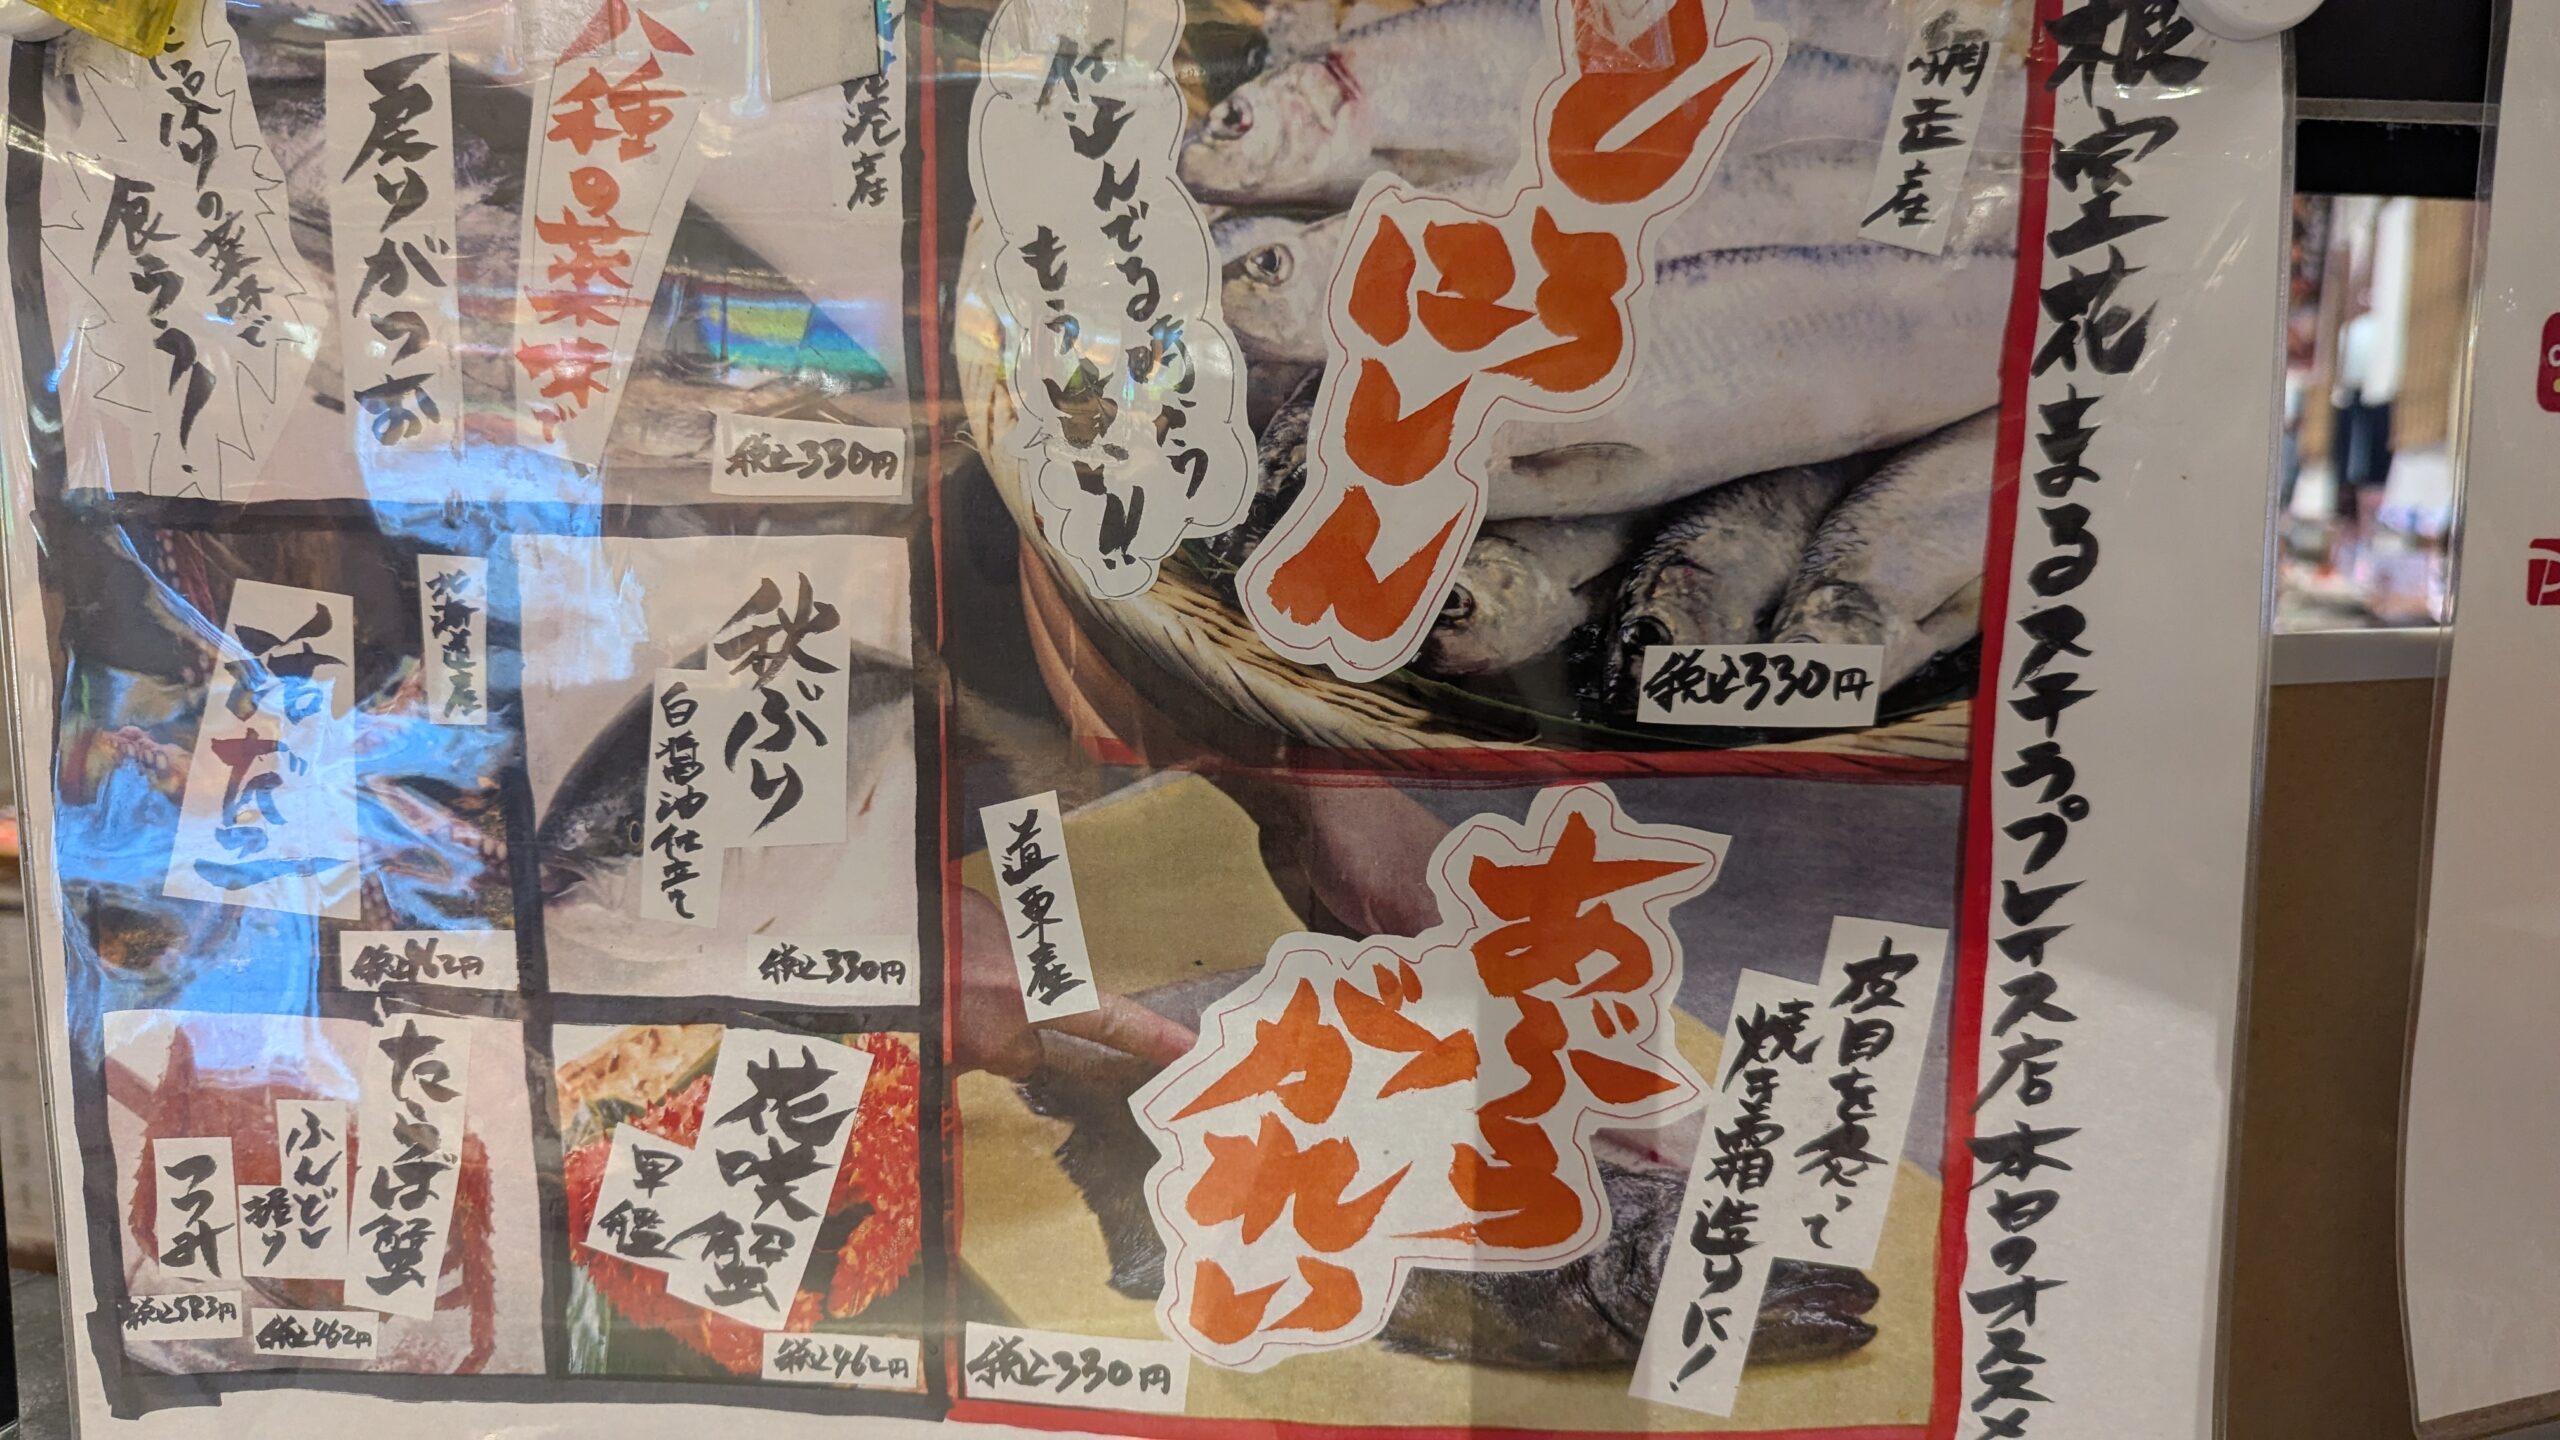 根室花まるステラプレイス店 本日のオススメ
網走産
しろにしん
仕込んでる時からもう
税込330円
あぶらがれい
道東産
皮目を炙って
焼き霜造りに!
税込330円
八種の薬味で
戻りがつお
の薬味で
戻ろう!
税込330円
秋ぶり
白醤油仕立て
税込330円
北海道産
活だこ
税込462円
花咲蟹
軍艦
税込462円
たらば蟹
ふんどし
握り
税込462円
つつみ
税込583円